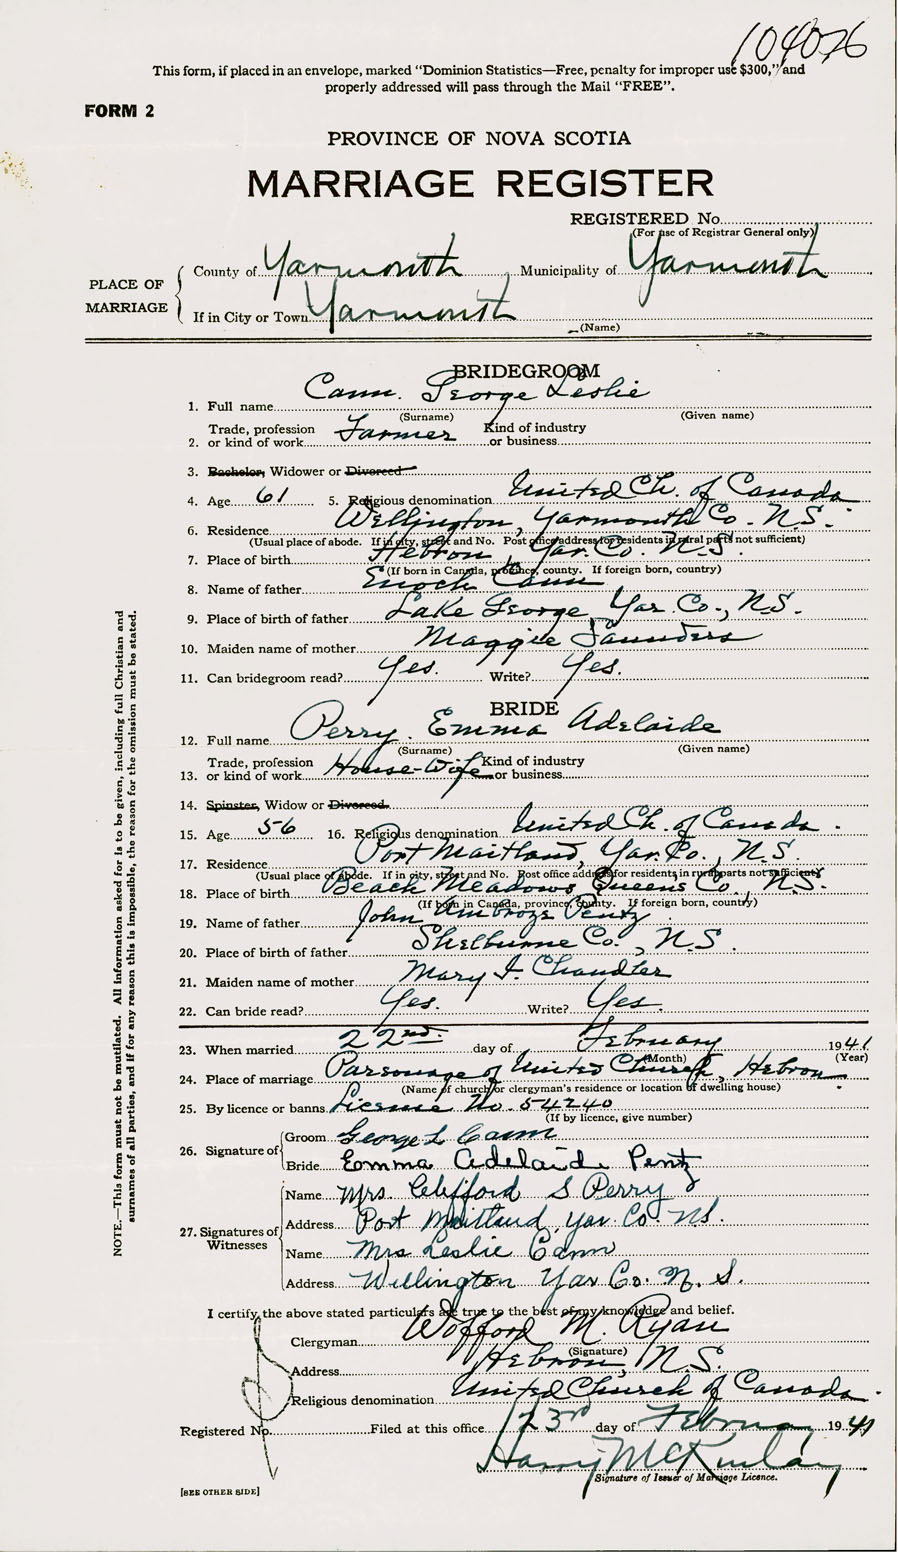 104076
This form, if placed in an envelope, marked "Dominion Statistics—Free, penalty for improper use $300," and
properly addressed will pass through the Mail "FREE".
FORM 2
PROVINCE OF NOVA SCOTIA
MARRIAGE REGISTER
REGISTERED No.
(For use of Registrar General only)
PLACE OF MARRIAGE
County of Yarmouth Municipality of Yarmouth
If in City or Town Yarmouth
(Name)
BRIDEGROOM
1. Full name Cann. George Leslie
(Surname) (Given name)
Trade, profession Kind of industry
2. or kind of work Farmer or business
3. Bachelor, Widower or Divorced
4. Age 61 5. Religious denomination United Ch. of Canada
6. Residence Wellington, Yarmouth Co. N.S.
(Usual place of abode. If in city, street and No. Post office address for residents in rural parts not sufficient)
7. Place of birth Hebron, Yar. Co. N.S.
(If born in Canada, province, county. If foreign born, country)
8. Name of father Enoch Cann
9. Place of birth of father Lake George Yar Co., N.S.
10. Maiden name of mother Maggie Saunders
11. Can bridegroom read? Yes. Write? Yes.
BRIDE
12. Full name Perry. Emma Adelaide
(Surname) (Given name)
Trade, profession Kind of industry
13. or kind of work House-Wife or business
14. Spinster, Widow or Divorced
15. Age 56 16. Religious denomination United Ch. of Canada.
17. Residence Port Maitland, Yar. Co., N.S.
(Usual place of abode. If in city, street and No. Post office address for residents in rural parts not sufficient)
18. Place of birth Beach Meadows Queens Co., N.S.
(If born in Canada, province, county. If foreign born, country)
19. Name of father John Ambroze Pentz
20. Place of birth of father Shelburne Co., N.S.
21. Maiden name of mother Mary I. Chandler
22. Can bride read? Yes. Write? Yes.
23. When married 22nd. day of February 1941
(Month) (Year)
24. Place of marriage Parsonage of United Church, Hebron.
(Name of church or clergyman's residence or location of dwelling house)
25. By licence or banns License No. 54240
(If by licence, give number)
26. Signature of
Groom George L Cann
Bride Emma Adelaide Pentz
27. Signatures of Witnesses
Name Mrs. Clifford S Perry
Address Port Maitland, Yar. Co. N.S.
Name Mrs Leslie Cann
Address Wellington Yar Co. N.S.
I certify the above stated particulars are true to the best of my knowledge and belief.
Clergyman Wofford M. Ryan
(Signature)
Address Hebron, N.S.
Religious denomination United Church of Canada.
Registered No. Filed at this office 23rd day of February 1941
Harry McKinlay
Signature of Issuer of Marriage Licence.
[SEE OTHER SIDE]
NOTE.—This form must not be mutilated. All information asked for is to be given, including full Christian and
surnames of all parties, and if for any reason this is impossible, the reason for the omission must be stated.